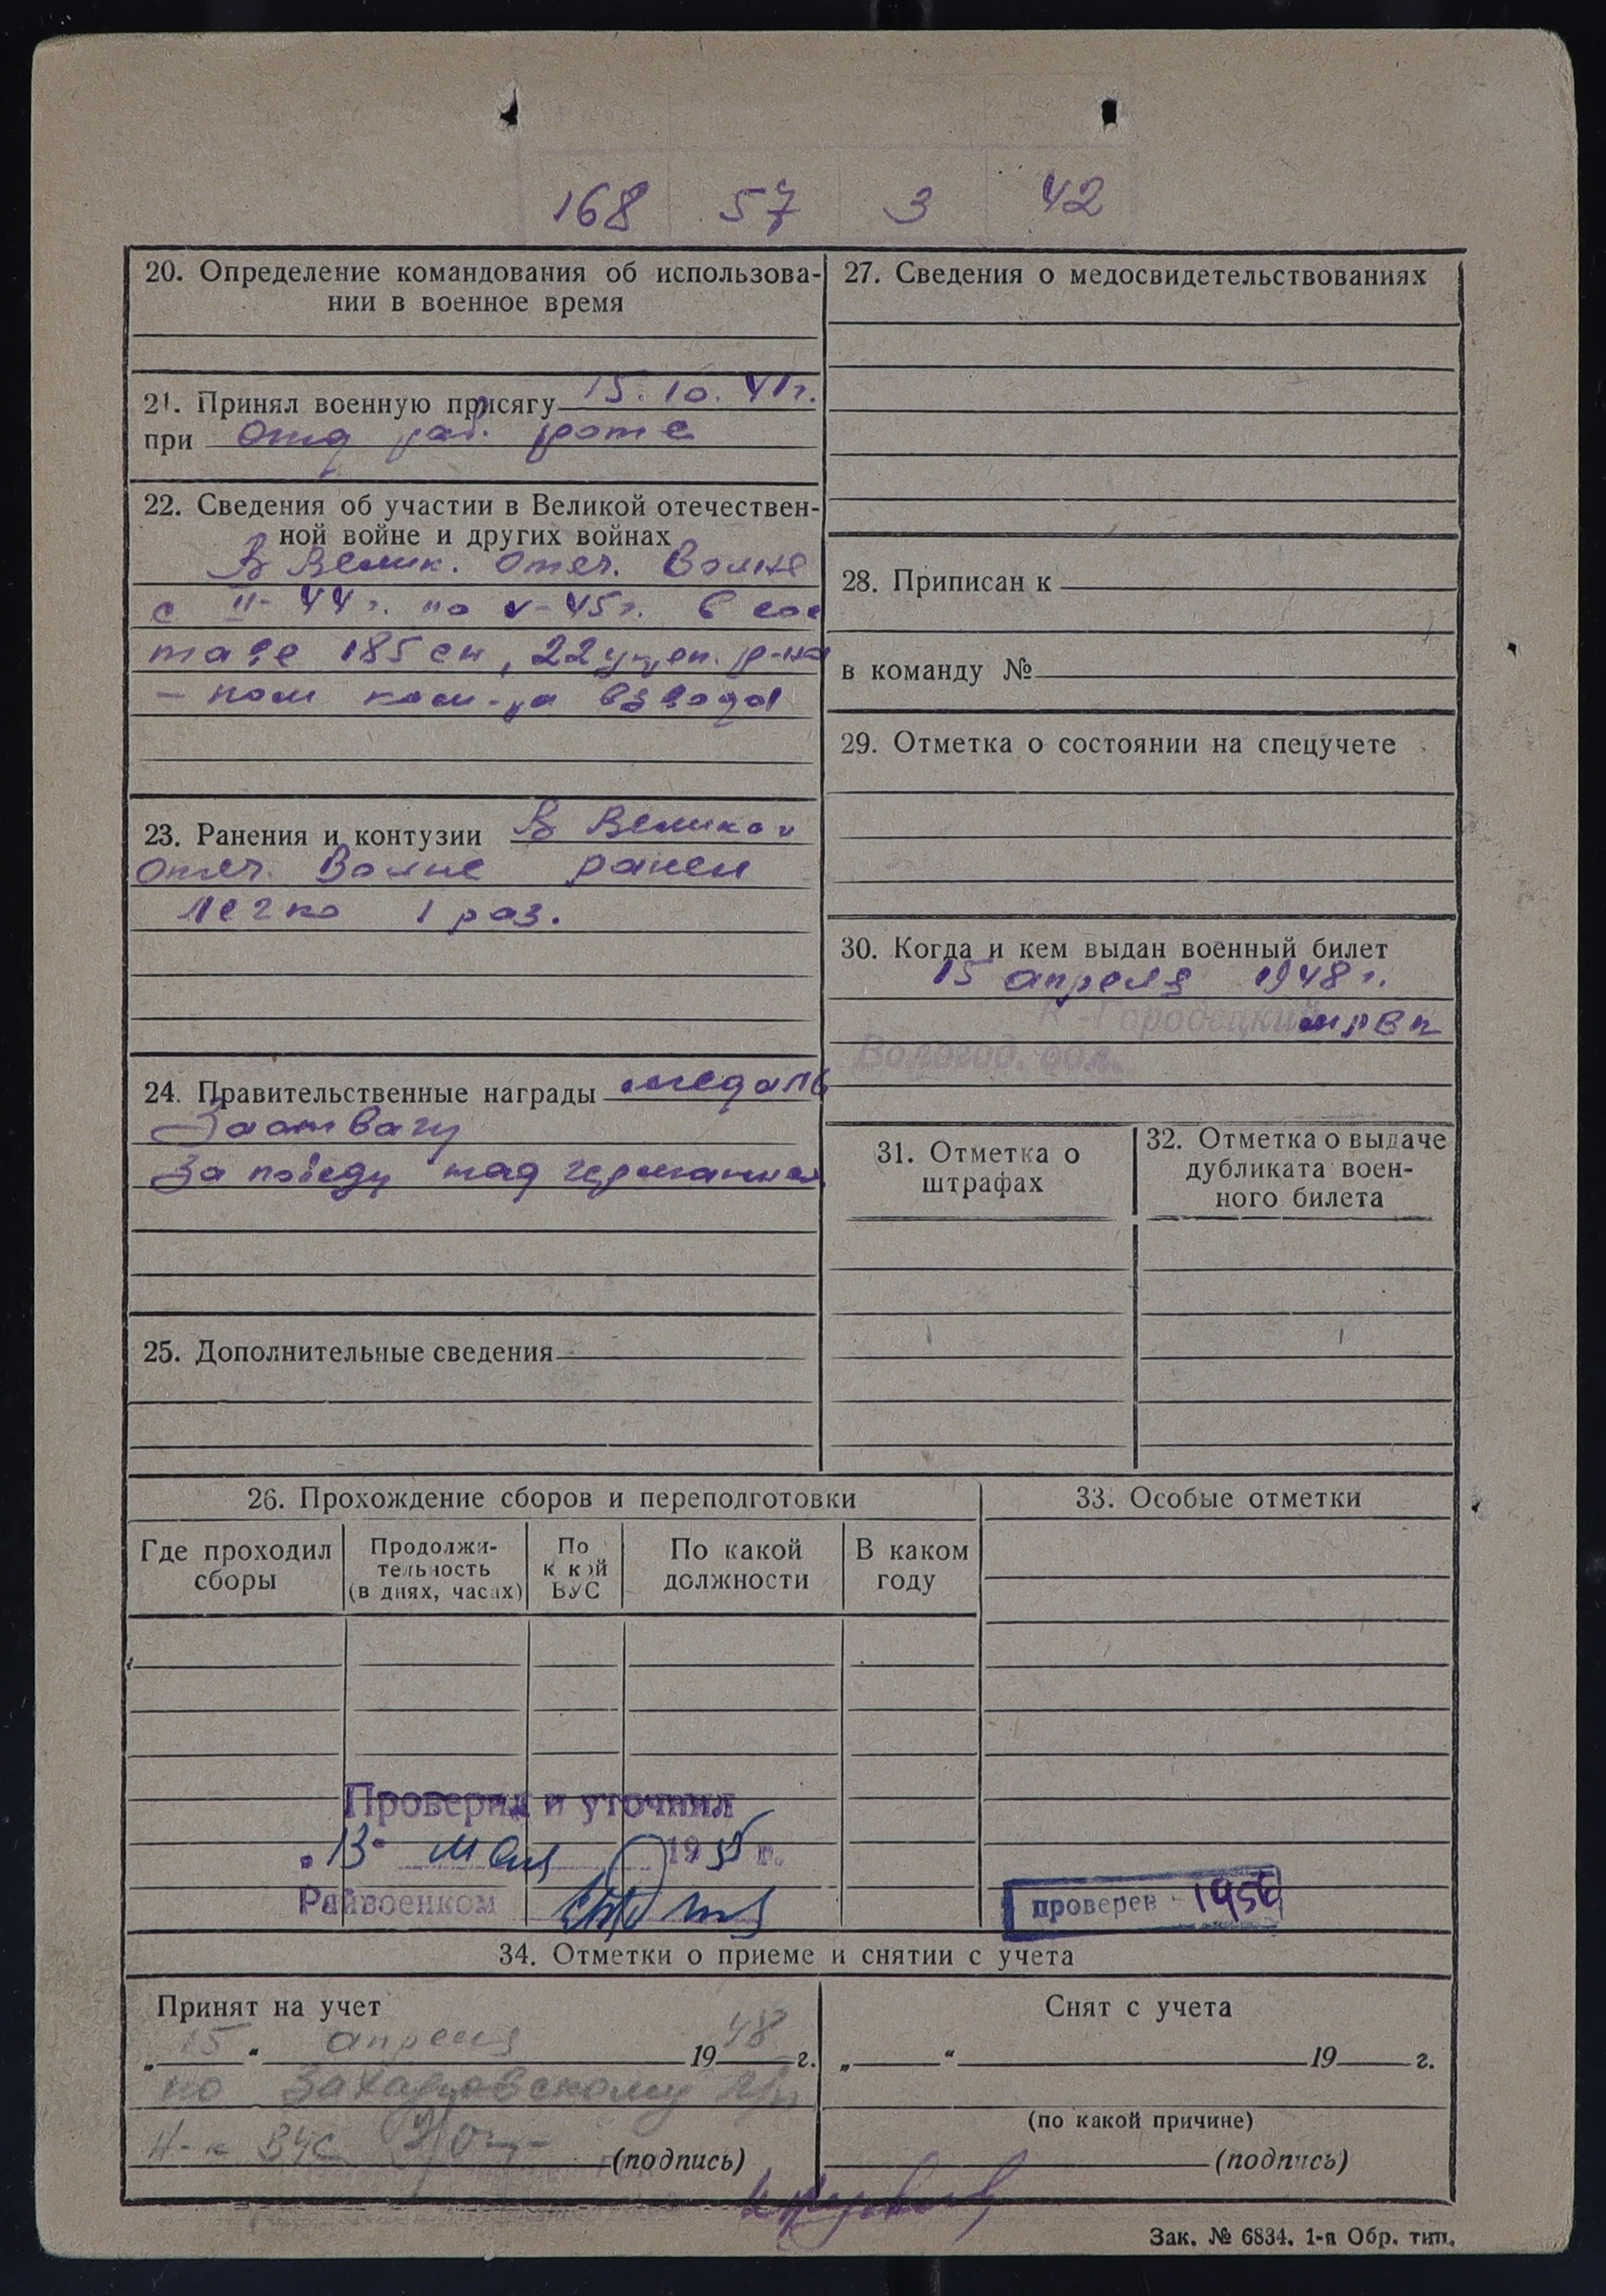 168 57 3 42
20. Определение командования об использова-
нии в военное время
21. Принял военную присягу 15.10.41г.
при отд раб. роте
22. Сведения об участии в Великой отечествен-
ной войне и других войнах
В Велик. Отеч. Войне
с II-44г. по V-45г. в сос
таве 185 сп, 22 укреп. р-на
- пом ком-ра взвода
23. Ранения и контузии В Великой
Отеч. Войне ранен
легко 1 раз.
24. Правительственные награды медаль
За отвагу
За победу над германией
25. Дополнительные сведения
27. Сведения о медосвидетельствованиях
28. Приписан к
в команду №
29. Отметка о состоянии на спецучете
30. Когда и кем выдан военный билет
15 апреля 1948г.
К-Городецкий рвк
Вологод. обл.
31. Отметка о
штрафах
32. Отметка о выдаче
дубликата воен-
ного билета
26. Прохождение сборов и переподготовки
Где проходил
сборы
Продолжи-
тельность
(в днях, часах)
По
к кой
ВУС
По какой
должности
В каком
году
33. Особые отметки
Проверил и уточнил
"13" мая 1955 г.
Райвоенком
проверен - 1956
34. Отметки о приеме и снятии с учета
Принят на учет
„15“ апреля 1948 г.
по Захаровскому
Н-к ВУС
(подпись)
Снят с учета
„ “ 19 г.
(по какой причине)
(подпись)
Зак. № 6834. 1-я Обр. тип.